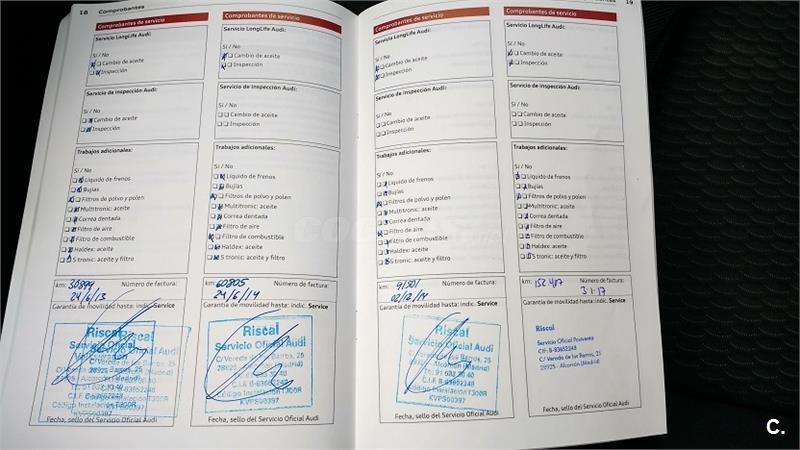 18 Comprobantes
Comprobantes de servicio
Servicio LongLife Audi:
Sí / No
Cambio de aceite
Inspección
Servicio de inspección Audi:
Sí / No
Cambio de aceite
Inspección
Trabajos adicionales:
Sí / No
Líquido de frenos
Bujías
Filtros de polvo y polen
Multitronic: aceite
Correa dentada
Filtro de aire
Filtro de combustible
Haldex: aceite
S tronic: aceite y filtro
km: 30899 Número de factura:
24/6/13
Garantía de movilidad hasta: indic. Service
Riscal
Servicio Oficial
Fecha, sello del Servicio Oficial Audi
Comprobantes de servicio
Servicio LongLife Audi:
Sí / No
Cambio de aceite
Inspección
Servicio de inspección Audi:
Sí / No
Cambio de aceite
Inspección
Trabajos adicionales:
Sí / No
Líquido de frenos
Bujías
Filtros de polvo y polen
Multitronic: aceite
Correa dentada
Filtro de aire
Filtro de combustible
Haldex: aceite
S tronic: aceite y filtro
km: 60805 Número de factura:
24/6/14
Garantía de movilidad hasta: indic. Service
Riscal
Servicio Oficial Audi
C/ Vereda de los Barros, 25
28925 - Alcorcón (Madrid)
C.I.F. B-83652248
Código Instalación T300R
KVPS00397
Fecha, sello del Servicio Oficial Audi
19
Comprobantes de servicio
Servicio LongLife Audi:
Sí / No
Cambio de aceite
Inspección
Servicio de inspección Audi:
Sí / No
Cambio de aceite
Inspección
Trabajos adicionales:
Sí / No
Líquido de frenos
Bujías
Filtros de polvo y polen
Multitronic: aceite
Correa dentada
Filtro de aire
Filtro de combustible
Haldex: aceite
S tronic: aceite y filtro
km: Número de factura:
Garantía de movilidad hasta: indic. Service
Riscal
Servicio Oficial Audi
C/ Vereda de los Barros, 25
28925 - Alcorcón (Madrid)
C.I.F. B-83652248
Código Instalación T300R
KVPS00397
Fecha, sello del Servicio Oficial Audi
Comprobantes de servicio
Servicio LongLife Audi:
Sí / No
Cambio de aceite
Inspección
Servicio de inspección Audi:
Sí / No
Cambio de aceite
Inspección
Trabajos adicionales:
Sí / No
Líquido de frenos
Bujías
Filtros de polvo y polen
Multitronic: aceite
Correa dentada
Filtro de aire
Filtro de combustible
Haldex: aceite
S tronic: aceite y filtro
km: Número de factura:
3-1-17
Garantía de movilidad hasta: indic. Service
Riscal
Servicio Oficial Postventa
CIF: B-83652248
C/ Vereda de los Barros, 25
28925 - Alcorcón (Madrid)
Fecha, sello del Servicio Oficial Audi
C.